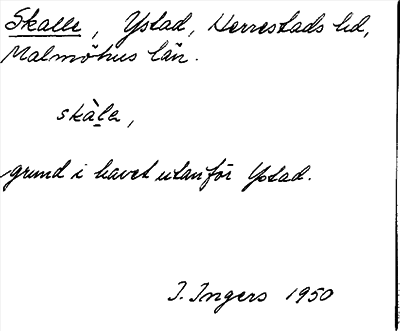 Skalle, Ystad, Herrestads hd,
Malmöhus län.
skàlͅe,
grund i havet utanför Ystad.
I. Ingers 1950